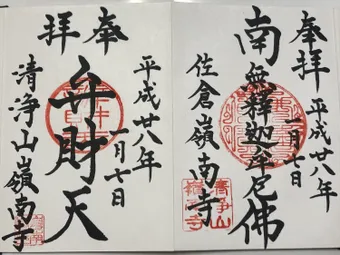 奉拝
平成廿八年
一月七日
南無釋迦牟尼佛
佐倉嶺南寺
奉拝
平成廿八年
一月十日
弁財天
清浄山嶺南寺